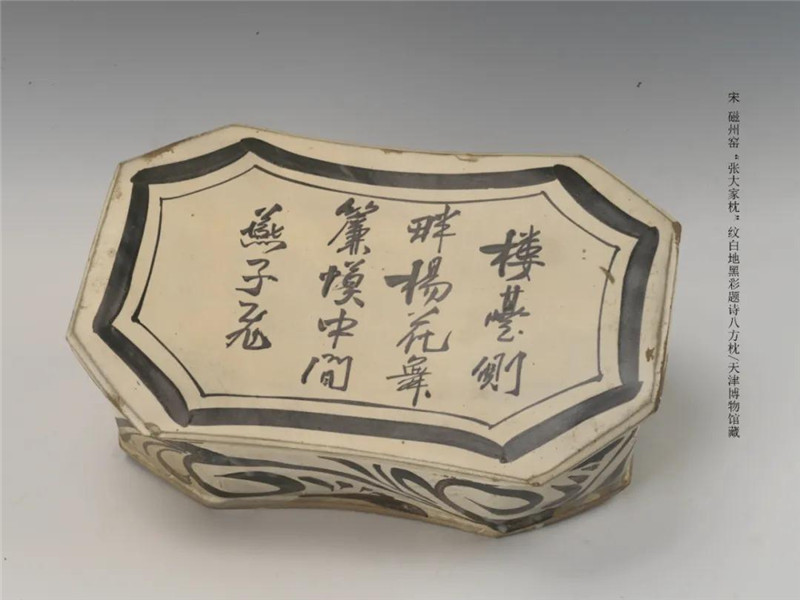 宋 磁州窑“张大家枕”纹白地黑彩题诗八方枕/天津博物馆藏
楼臺側
畔楊花舞
簾幙中間
燕子飛